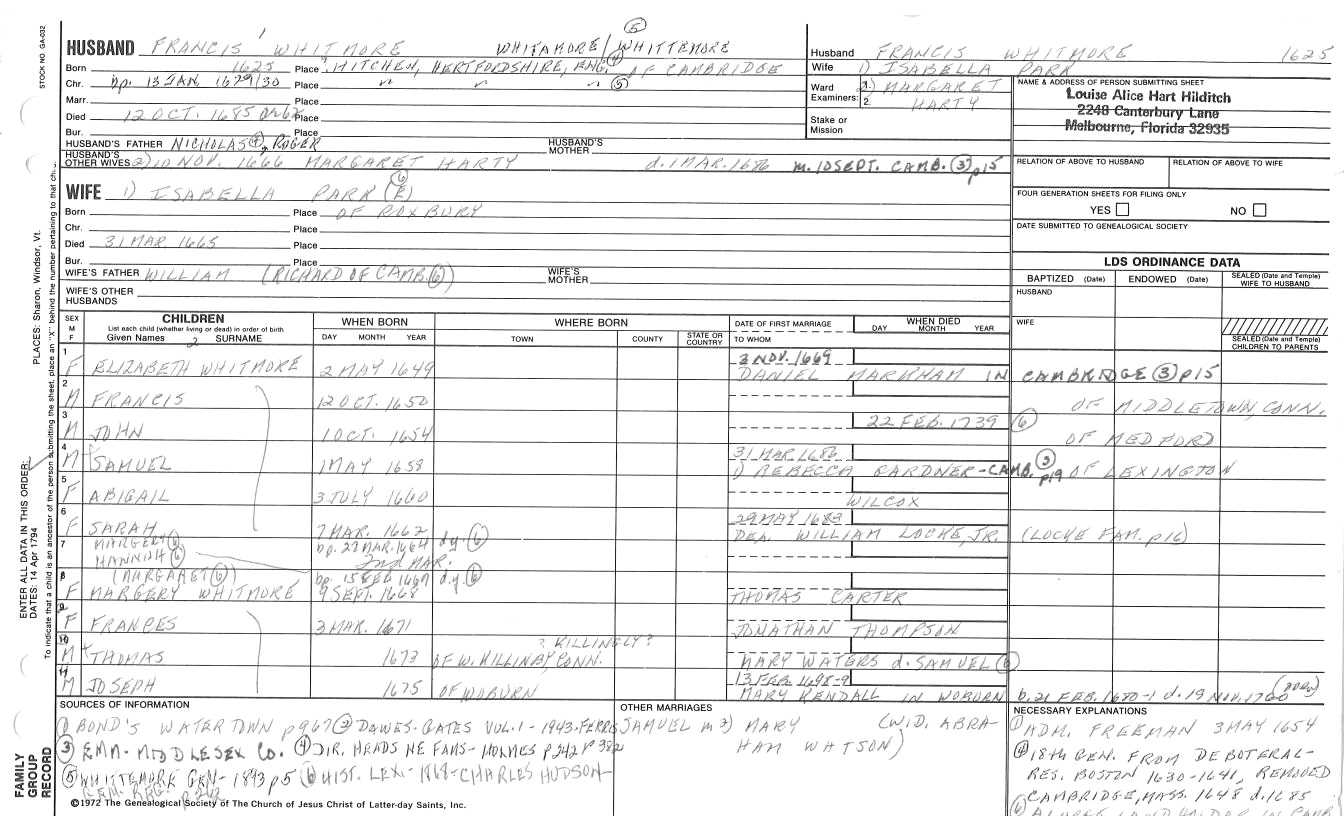 STOCK NO GA-032
HUSBAND FRANCIS WHITMORE WHITAMORE/ WHITTEMORE (5)
Born 1625 Place HITCHEN, HERTFORDSHIRE, ENG. (4) OF CAMBRIDGE
Chr. bp. 13 JAN. 1629/30 Place " " " (5)
Marr. Place
Died 12 OCT. 1685 Place
Bur. Place
HUSBAND'S FATHER NICHOLAS (4), ROGER HUSBAND'S MOTHER
HUSBAND'S OTHER WIVES 2) 10 NOV. 1666 MARGARET HARTY d. 1 MAR. 1686 m. 10 SEPT. CAMB. (3) p15
WIFE 1) ISABELLA PARK (E) (6)
Born Place OF ROXBURY
Chr. Place
Died 31 MAR 1665 Place
Bur. Place
WIFE'S FATHER WILLIAM (RICHARD OF CAMB. (6)) WIFE'S MOTHER
WIFE'S OTHER HUSBANDS
Husband FRANCIS WHITMORE 1625
Wife 1) ISABELLA PARK
Ward Examiners: 1. 2) MARGARET
2. HARTY
Stake or Mission
NAME & ADDRESS OF PERSON SUBMITTING SHEET
Louise Alice Hart Hilditch
2248 Canterbury Lane
Melbourne, Florida 32935
RELATION OF ABOVE TO HUSBAND RELATION OF ABOVE TO WIFE
FOUR GENERATION SHEETS FOR FILING ONLY
YES NO
DATE SUBMITTED TO GENEALOGICAL SOCIETY
LDS ORDINANCE DATA
BAPTIZED (Date) ENDOWED (Date) SEALED (Date and Temple) WIFE TO HUSBAND
HUSBAND
WIFE
SEALED (Date and Temple) CHILDREN TO PARENTS
SEX M F CHILDREN WHEN BORN WHERE BORN DATE OF FIRST MARRIAGE WHEN DIED
List each child (whether living or dead) in order of birth
Given Names 2 SURNAME DAY MONTH YEAR TOWN COUNTY STATE OR COUNTRY TO WHOM DAY MONTH YEAR
1 3 NOV. 1669
F ELIZABETH WHITMORE 2 MAY 1649 DANIEL MARKHAM IN CAMBRIDGE (3) p15
2
M FRANCIS 12 OCT. 1650 OF MIDDLETOWN, CONN.
3 22 FEB. 1739 (6)
M JOHN 1 OCT. 1654 OF MEDFORD
4 31 MAR 1686
M SAMUEL 1 MAY 1658 1) REBECCA GARDNER - CAMB. (3) p19 OF LEXINGTON
5
F ABIGAIL 3 JULY 1660 WILCOX
6 29 MAY 1683
F SARAH 7 MAR. 1662 DEA. WILLIAM LOCKE, JR. (LOCKE FAM. p16)
7 MARGERY (6) bp. 27 MAR. 1664 d.y. (6)
HANNAH (6) 2nd MAR.
8 (MARGARET (6)) bp. 15 FEB 1667 d.y. (6)
F MARGERY WHITMORE 9 SEPT. 1668 THOMAS CARTER
9
F FRANCES 3 MAR. 1671 JONATHAN THOMPSON
10 ? KILLINGLY?
M THOMAS 1673 OF W. KILLINBY CONN. MARY WATERS d. SAMUEL (6)
11 13 FEB. 1698-9
M JOSEPH 1675 OF WOBURN MARY KENDALL IN WOBURN b. 21 FEB. 1680-1 d. 19 NOV. 1760
SOURCES OF INFORMATION
(1) BOND'S WATERTOWN p 967 (2) DAWES-GATES VOL. 1 - 1943 - FERRIS
(3) EMM. MIDDLESEX CO. (4) DIR. HEADS NE FAMS - HOLMES p 242 p 382
(5) WHITTEMORE GEN - 1893 p5 (6) HIST. LEX. - 1868 - CHARLES HUDSON -
©1972 The Genealogical Society of The Church of Jesus Christ of Latter-day Saints, Inc.
OTHER MARRIAGES
SAMUEL m 2) MARY (WID. ABRA-
HAM WATSON)
NECESSARY EXPLANATIONS
(1) ADM. FREEMAN 3 MAY 1654
(4) 18TH GEN. FROM DE BOTERAL-
RES. BOSTON 1630-1641, REMOVED
CAMBRIDGE, MASS. 1648 d. 1685
ENTER ALL DATA IN THIS ORDER:
DATES: 14 Apr 1794
PLACES: Sharon, Windsor, Vt.
To indicate that a child is an ancestor of the person submitting the sheet, place an "X" behind the number pertaining to that
FAMILY GROUP RECORD